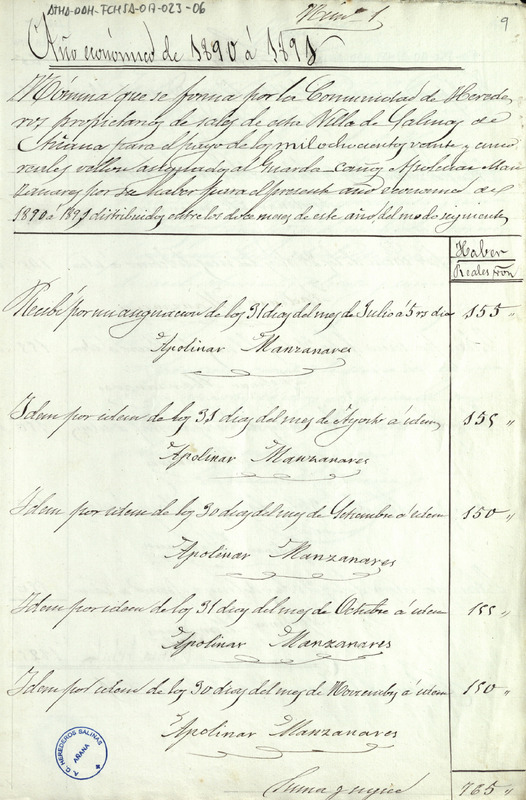 ATHA-DAH-FCHSA-017-023-06
Num 1
9
Año económico de 1890 á 1891
Nómina que se forma por la Comunidad de Herede
ros propietarios de sales de esta Villa de Salinas de
Añana para el pago de los mil ochocientos veinte y cinco
reales vellon asignados al Guarda caños Apolinar Man
zanares por su haber para el presente año economico de
1890 á 1891 distribuidos entre los doce meses de este año del modo siguiente
Haber
Reales von
Recibí por mi asignacion de los 31 dias del mes de Julio á 5 rs dia 155 "
Apolinar Manzanares
Idem por idem de los 31 dias del mes de Agosto á idem 155 "
Apolinar Manzanares
Idem por idem de los 30 dias del mes de Setiembre á idem 150 "
Apolinar Manzanares
Idem por idem de los 31 dias del mes de Octubre á idem 155 "
Apolinar Manzanares
Idem por idem de los 30 dias del mes de Noviembre á idem 150 "
Apolinar Manzanares
Suma y sigue 765 "
HEREDEROS SALINAS
AÑANA